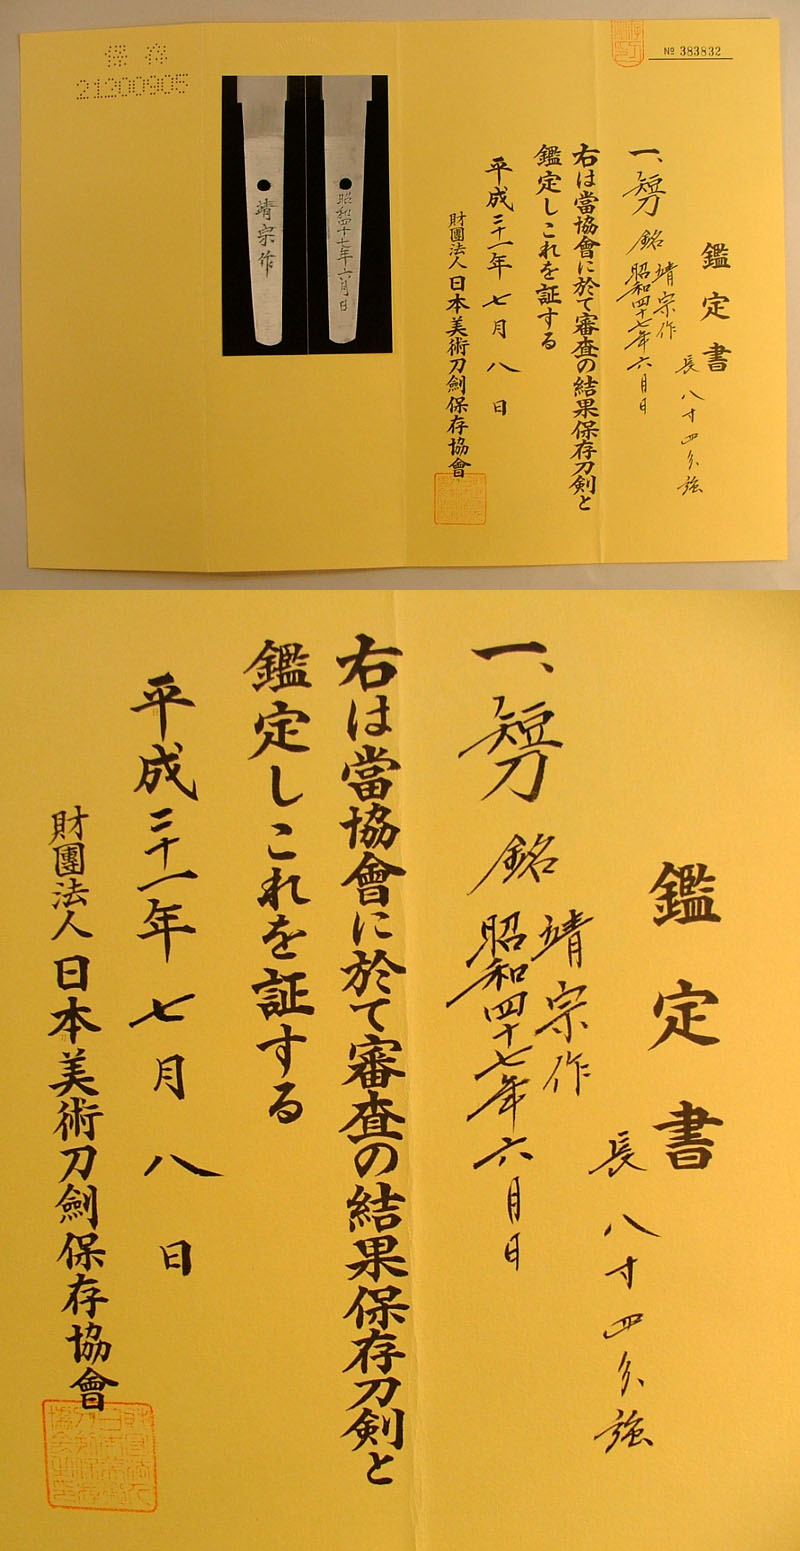 保存
21200905
靖宗作
昭和四十七年六月日
№ 383832
鑑定書
一、短刀 銘 靖宗作
昭和四十七年六月日
長 八寸四分強
右は當協會に於て審査の結果保存刀剣と
鑑定しこれを証する
平成二十一年七月八日
財團法人日本美術刀劍保存協會
鑑定書
長 八寸四分強
一、短刀 銘 靖宗作
昭和四十七年六月日
右は當協會に於て審査の結果保存刀剣と
鑑定しこれを証する
平成二十一年七月八日
財團法人日本美術刀劍保存協會